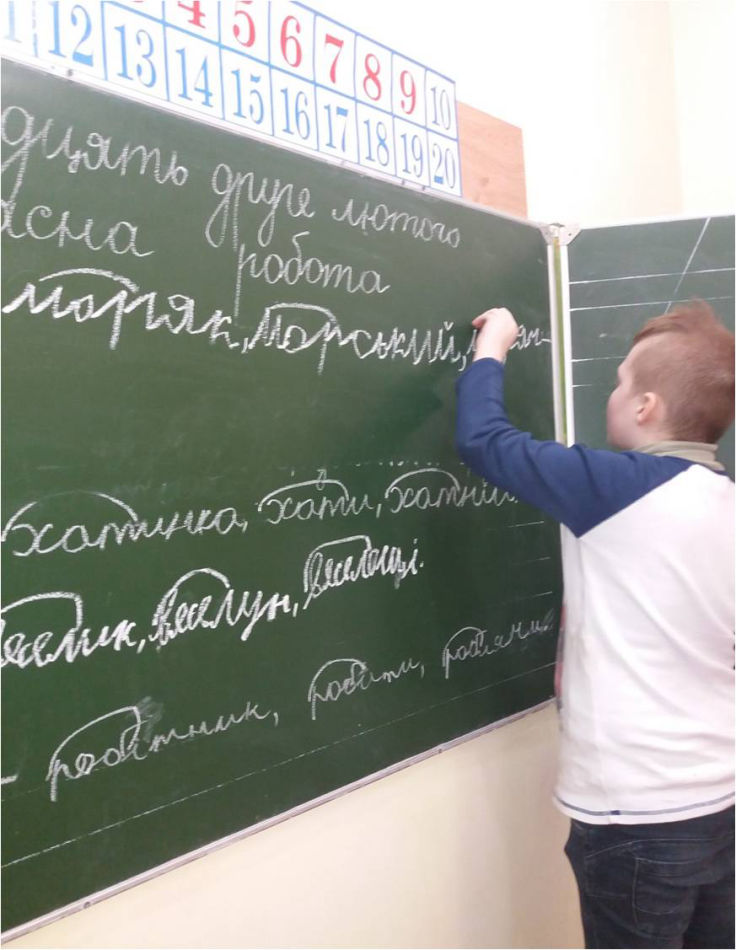 4 5 6 7 8 9 10
12 13 14 15 16 17 18 19 20
дцять друге лютого
асна робота
моряк, морський,
хатинка, хати, хатній.
веселун, веселощі.
робітник, робити,